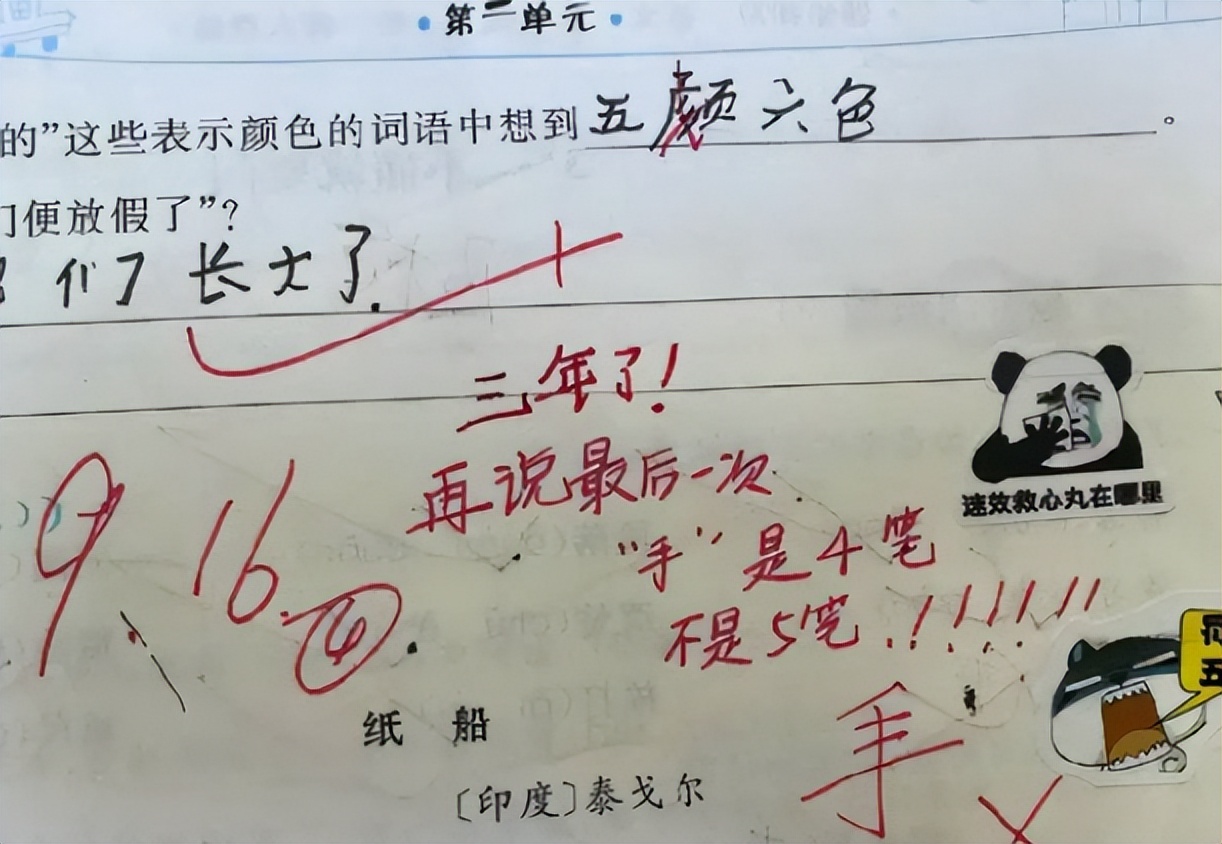 第二单元
的”这些表示颜色的词语中想到五颜六色。
们便放假了”?
们了长大了.
三年了!
再说最后一次.
“手”是4笔
不是5笔.!!!!!!
速效救心丸在哪里
9.16.④.
手
纸船
〔印度〕泰戈尔